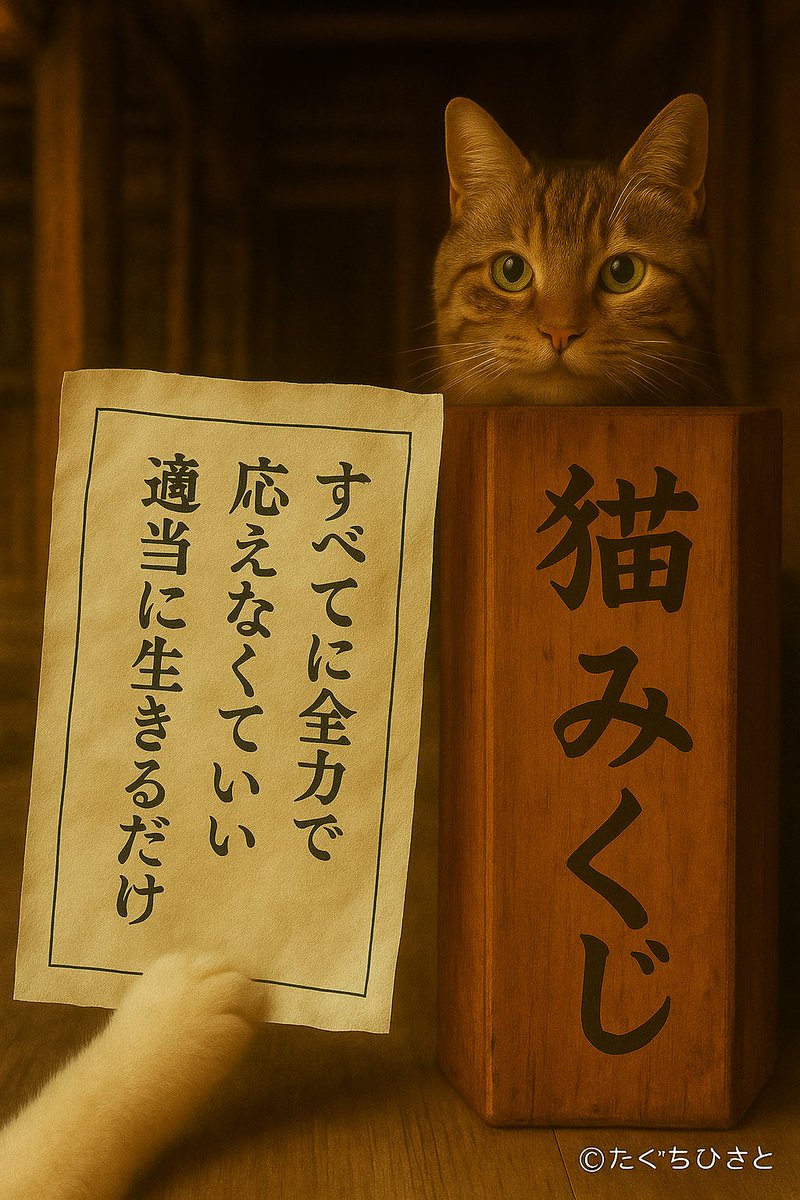 すべてに全力で
応えなくていい
適当に生きるだけ
猫みくじ
©たぐちひさと